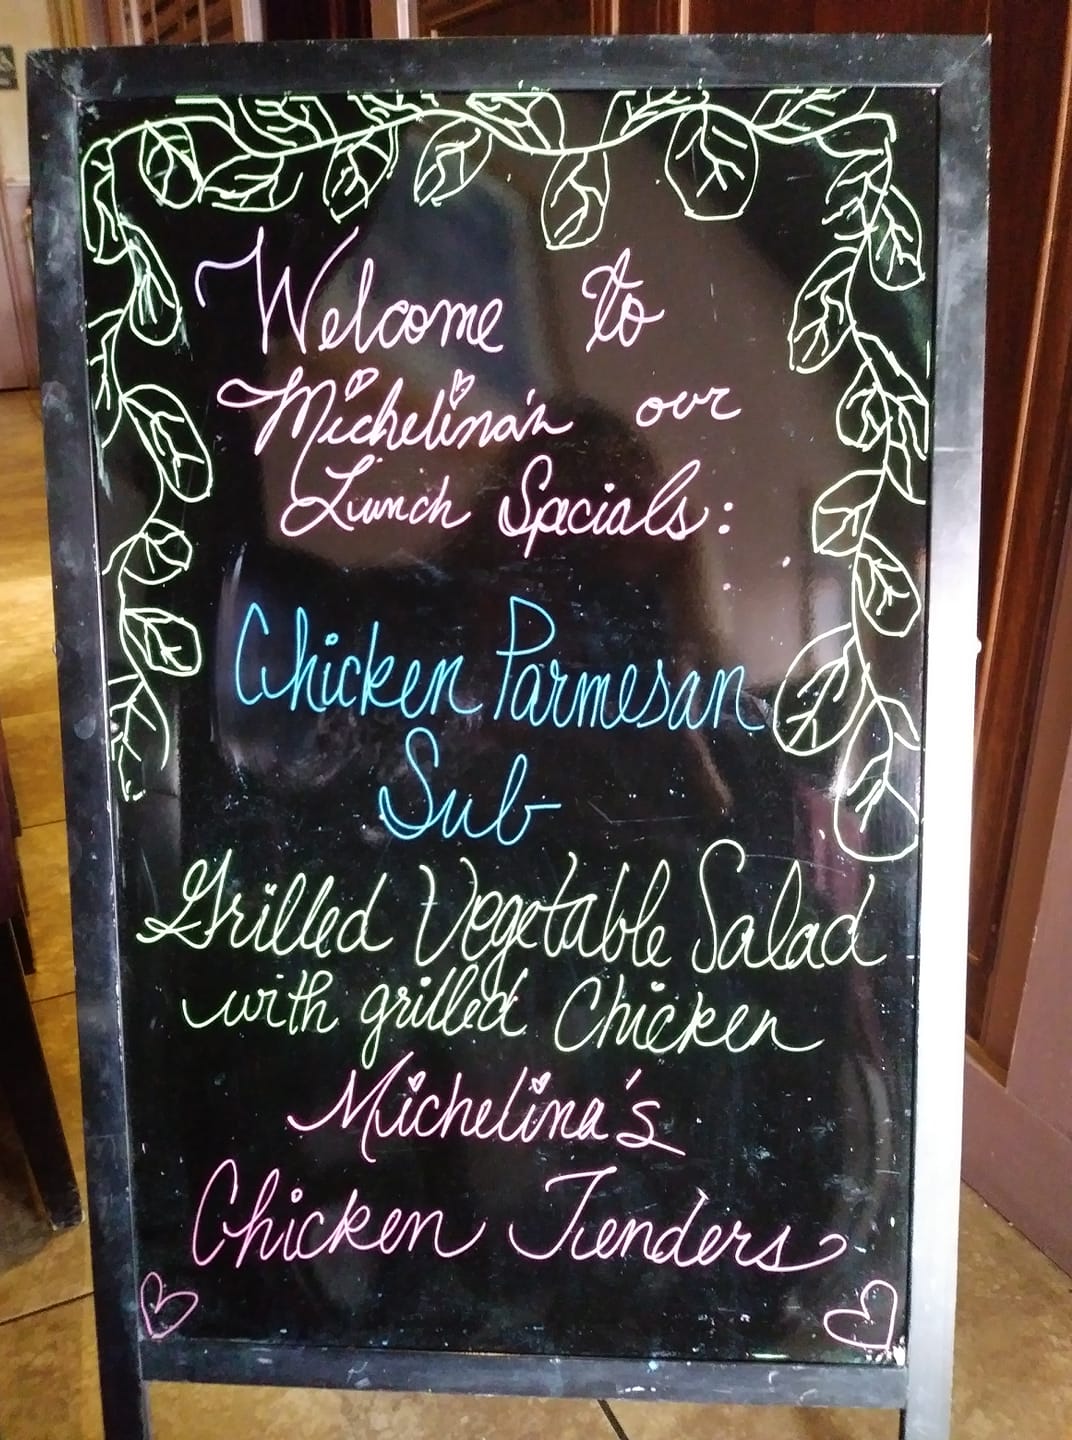 Welcome to
Michelina's our
Lunch Spacials:
Chicken Parmesan
Sub
Grilled Vegetable Salad
with grilled Chicken
Michelina's
Chicken Tenders